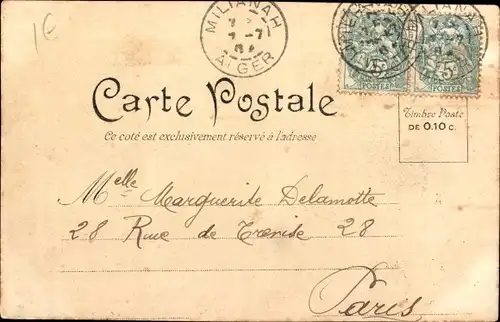 1€
MILIANAH
ALGER
MILIANAH
POSTES
5
POSTES
Carte Postale
Ce coté est exclusivement réservé à l'adresse
Timbre Poste
DE 0.10 c.
Melle Marguerite Delamotte
28 Rue de Trevise 28
Paris